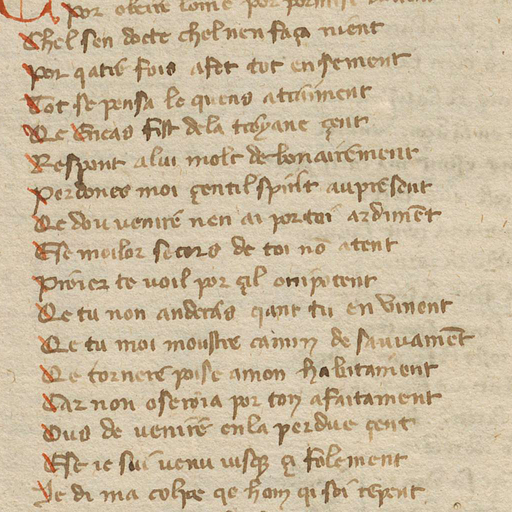 Por
Chel sen docte chel nen faça nient
Por qatre fois a fet tot ensement
Tot se pensa le quens atraiment
De Eneas fist de la troyane çent
Respont a lui molt de bonairement
Perdones moi gentil spirt au present
De dou venire nen ai por toi ardiment
E se meilor secors de toi no atent
Proier te voil por çil onipotent
Qe tu non anderas qant tu en vinent
Qe tu moi moustre camin de sauvament
Qe tornere poise a mon habitament
Car non oseroia por ton afaitament
Ous de venire en la perdue gent
E se ie sui venu iusqe ci folement
Je di ma colpe qe hom qi soi repent